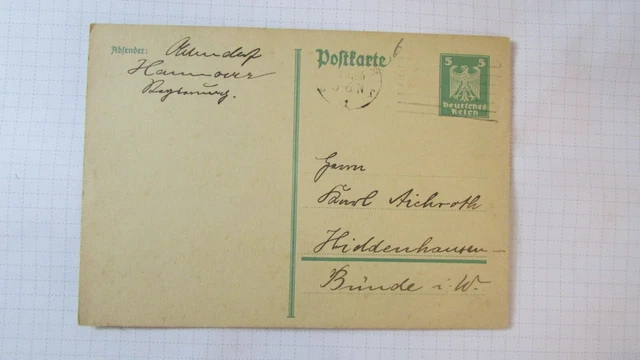 Absender:
Hannover
Regierung.
Postkarte
6
5 5
Deutsches
Reich
Herrn
Karl Aichroth
Hiddenhausen-
Bünde i. W.